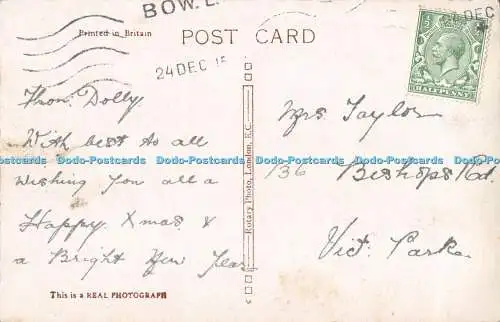 BOW. E.
24 DEC
Printed in Britain
POST CARD
24 DEC 15
HALFPENNY
From Dolly.
With best to all
Wishing you all a
Happy Xmas &
a Bright New Year
Mrs Taylor
136 Bishops Rd
Vict. Park.
Rotary Photo, London, E.C.
Dodo-Postcards Dodo-Postcards Dodo-Postcards Dodo-Postcards Dodo-Postcards
This is a REAL PHOTOGRAPH